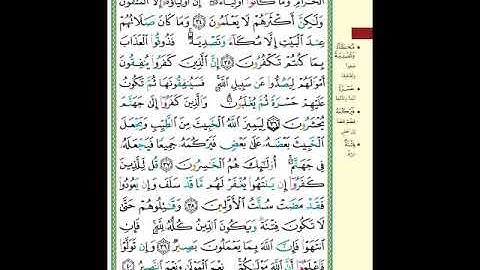 الْحَرَامِ وَمَا كَانُوا أَوْلِيَاءَهُ إِنْ أَوْلِيَاؤُهُ إِلَّا الْمُتَّقُونَ
وَلَٰكِنَّ أَكْثَرَهُمْ لَا يَعْلَمُونَ ٣٤ وَمَا كَانَ صَلَاتُهُمْ
عِندَ الْبَيْتِ إِلَّا مُكَاءً وَتَصْدِيَةً فَذُوقُوا الْعَذَابَ
بِمَا كُنتُمْ تَكْفُرُونَ ٣٥ إِنَّ الَّذِينَ كَفَرُوا يُنفِقُونَ
أَمْوَٰلَهُمْ لِيَصُدُّوا عَن سَبِيلِ اللَّهِ فَسَيُنفِقُونَهَا ثُمَّ تَكُونُ
عَلَيْهِمْ حَسْرَةً ثُمَّ يُغْلَبُونَ وَالَّذِينَ كَفَرُوا إِلَىٰ جَهَنَّمَ
يُحْشَرُونَ ٣٦ لِيَمِيزَ اللَّهُ الْخَبِيثَ مِنَ الطَّيِّبِ وَيَجْعَلَ
الْخَبِيثَ بَعْضَهُ عَلَىٰ بَعْضٍ فَيَرْكُمَهُ جَمِيعًا فَيَجْعَلَهُ
فِي جَهَنَّمَ أُولَٰئِكَ هُمُ الْخَٰسِرُونَ ٣٧ قُل لِّلَّذِينَ
كَفَرُوا إِن يَنتَهُوا يُغْفَرْ لَهُم مَّا قَدْ سَلَفَ وَإِن يَعُودُوا
فَقَدْ مَضَتْ سُنَّتُ الْأَوَّلِينَ ٣٨ وَقَٰتِلُوهُمْ حَتَّىٰ
لَا تَكُونَ فِتْنَةٌ وَيَكُونَ الدِّينُ كُلُّهُ لِلَّهِ فَإِنِ
انتَهَوْا فَإِنَّ اللَّهَ بِمَا يَعْمَلُونَ بَصِيرٌ ٣٩ وَإِن تَوَلَّوْا
فَاعْلَمُوا أَنَّ اللَّهَ مَوْلَٰكُمْ نِعْمَ الْمَوْلَىٰ وَنِعْمَ النَّصِيرُ ٤٠
مُكَاءً
وَتَصْدِيَةً
حَسْرَةً
فَيَرْكُمَهُ
فِتْنَةٌ